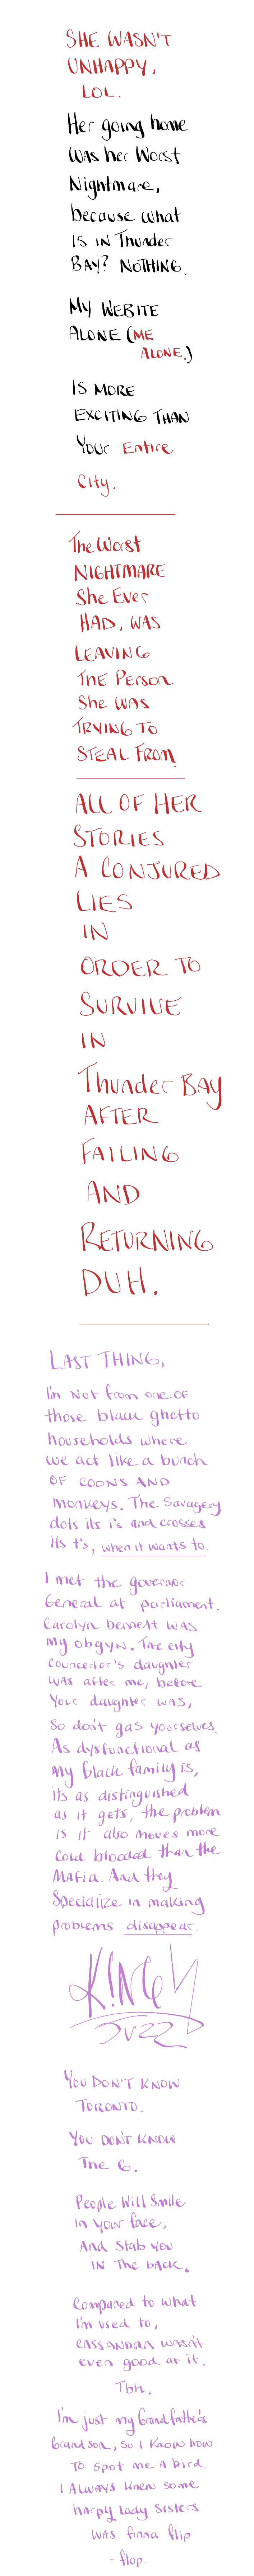 SHE WASN'T
UNHAPPY,
LOL.
Her going home
Was her Worst
Nightmare,
because what
IS IN Thunder
BAY? NOTHING.
MY WEBITE
ALONE (ME
ALONE.)
IS MORE
EXCITING THAN
Your Entire
City.
The Worst
NIGHTMARE
She Ever
HAD, WAS
LEAVING
THE PERSON
She WAS
TRYING TO
STEAL FROM.
ALL OF HER
STORIES
A CONJURED
LIES
IN
ORDER TO
SURVIVE
IN
Thunder BAY
AFTER
FAILING
AND
RETURNING
DUH.
LAST THING,
I'm Not from one OF
those black ghetto
households where
we act like a bunch
OF COONS AND
Monkeys. The Savagery
dots its i's and crosses
its t's, when it wants to.
I met the governor
General at parliament.
Carolyn bennett was
my obgyn. The city
councelor's daughter
was after me, before
your daughter was,
So don't gas yourselves.
As dysfunctional as
my black family is,
its as distinguished
as it gets, the problem
is it also moves more
cold blooded than the
Mafia. And they
Specialize in making
problems disappear.
K!NG
YOU DON'T KNOW
TORONTO.
YOU DON'T KNOW
The 6.
People Will Smile
in your face,
And Stab you
IN The back.
Compared to what
I'm used to,
CASSANDRA wasn't
even good at it.
Tbh.
I'm just my Grandfather's
Grandson, so I know how
TO spot me A bird.
I ALWAYS knew some
harpy lady sisters
was finna flip
- flop.